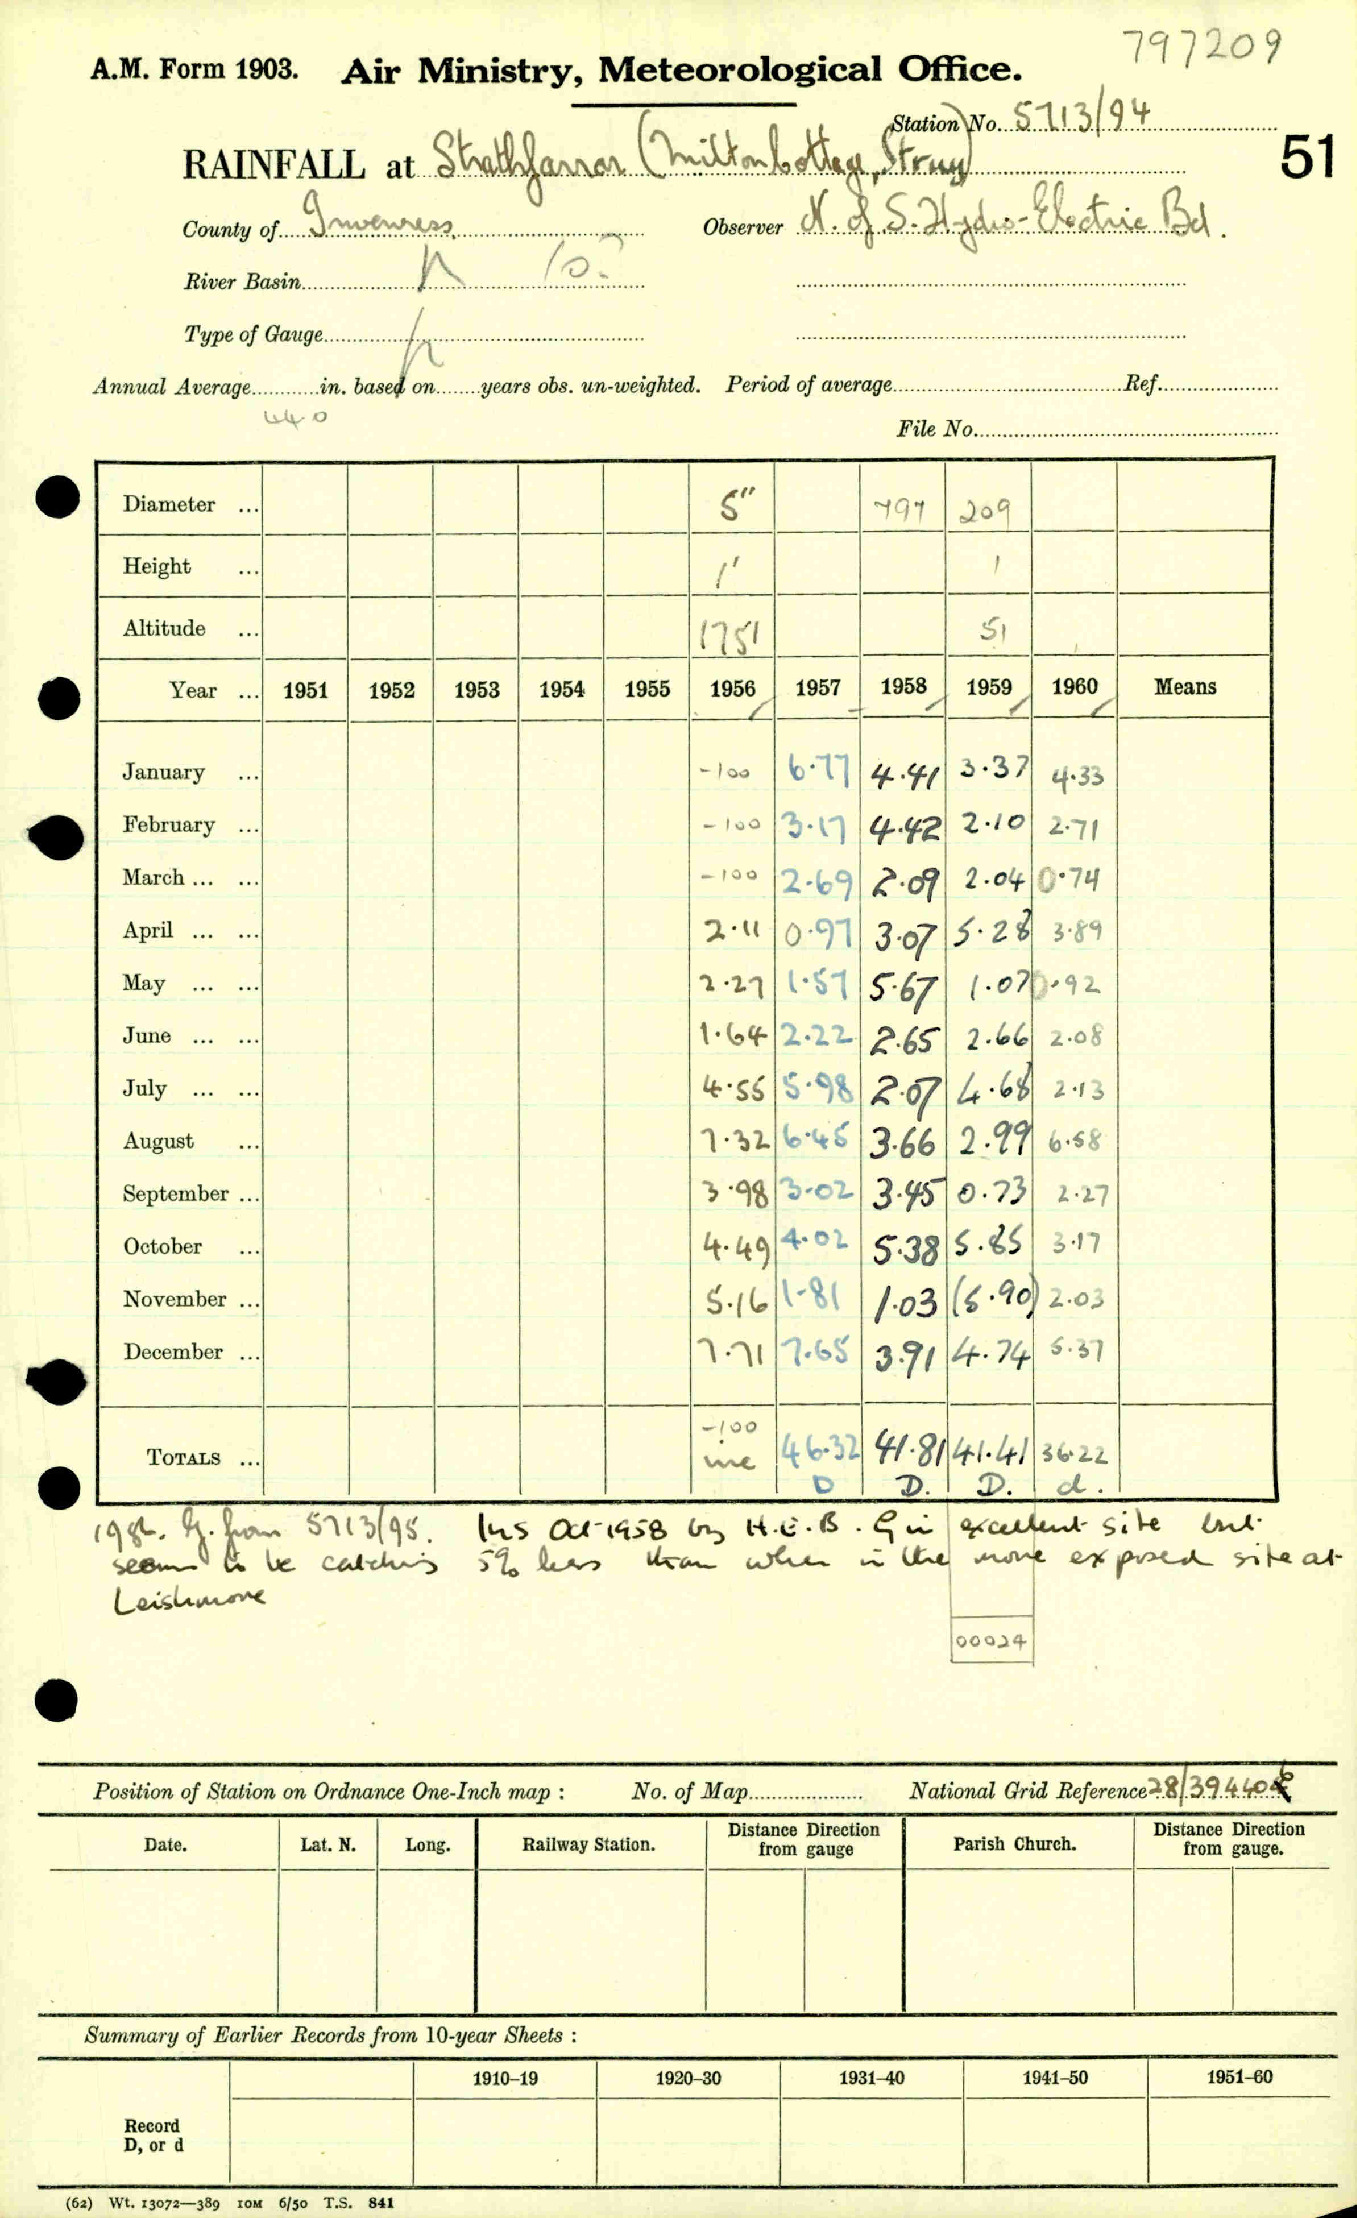 797209
A.M. Form 1903. Air Ministry, Meteorological Office.
Station No. 5713/94
RAINFALL at Strathfarrar (Milton Cottage, Struy)
51
County of Inverness Observer N. of S. Hydro-Electric Bd.
River Basin
Type of Gauge
Annual Average in. based on years obs. un-weighted. Period of average Ref.
44.0
File No.
Diameter ... 5" 797 209
Height ... 1' 1
Altitude ... 1751 51
Year ... 1951 1952 1953 1954 1955 1956 1957 1958 1959 1960 Means
January ... -100 6.77 4.41 3.37 4.33
February ... -100 3.17 4.42 2.10 2.71
March ... ... -100 2.69 2.09 2.04 0.74
April ... ... 2.11 0.97 3.07 5.28 3.89
May ... ... 2.27 1.57 5.67 1.07 0.92
June ... ... 1.64 2.22 2.65 2.66 2.08
July ... ... 4.55 5.98 2.07 4.68 2.13
August ... 7.32 6.45 3.66 2.99 6.58
September ... 3.98 3.02 3.45 0.73 2.27
October ... 4.49 4.02 5.38 5.85 3.17
November ... 5.16 1.81 1.03 (5.90) 2.03
December ... 7.71 7.65 3.91 4.74 5.37
-100
TOTALS ... inc 46.32 41.81 41.41 36.22
D D. D. d.
G. from 5713/95. Ins Oct 1958 by H.E.B. G in excellent site but
seems to be catching 5% less than when in the more exposed site at
Leishmore
00024
Position of Station on Ordnance One-Inch map : No. of Map National Grid Reference 28/394404
Date. Lat. N. Long. Railway Station. Distance Direction from gauge Parish Church. Distance Direction from gauge.
Summary of Earlier Records from 10-year Sheets :
1910–19 1920–30 1931–40 1941–50 1951–60
Record
D, or d
(62) Wt. 13072—389 10M 6/50 T.S. 841